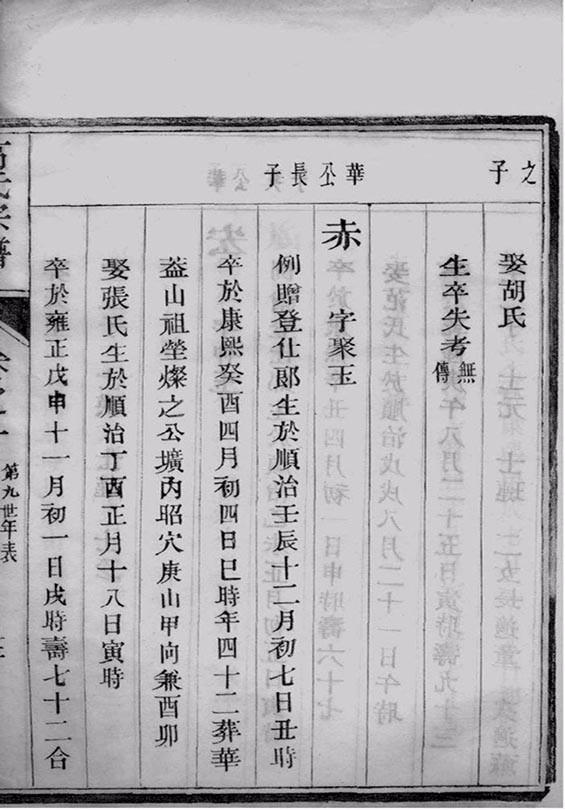 之子
娶胡氏
生卒失考無傳
華公長子
赤 字聚玉
例贈登仕郎生於順治壬辰十二月初七日丑時
卒於康熙癸酉四月初四日巳時年四十二葬華
葢山祖塋燦之公壙內昭穴庚山甲向兼酉卯
娶張氏生於順治丁酉正月十八日寅時
卒於雍正戊申十一月初一日戌時壽七十二合
氏宗譜
第九世年表